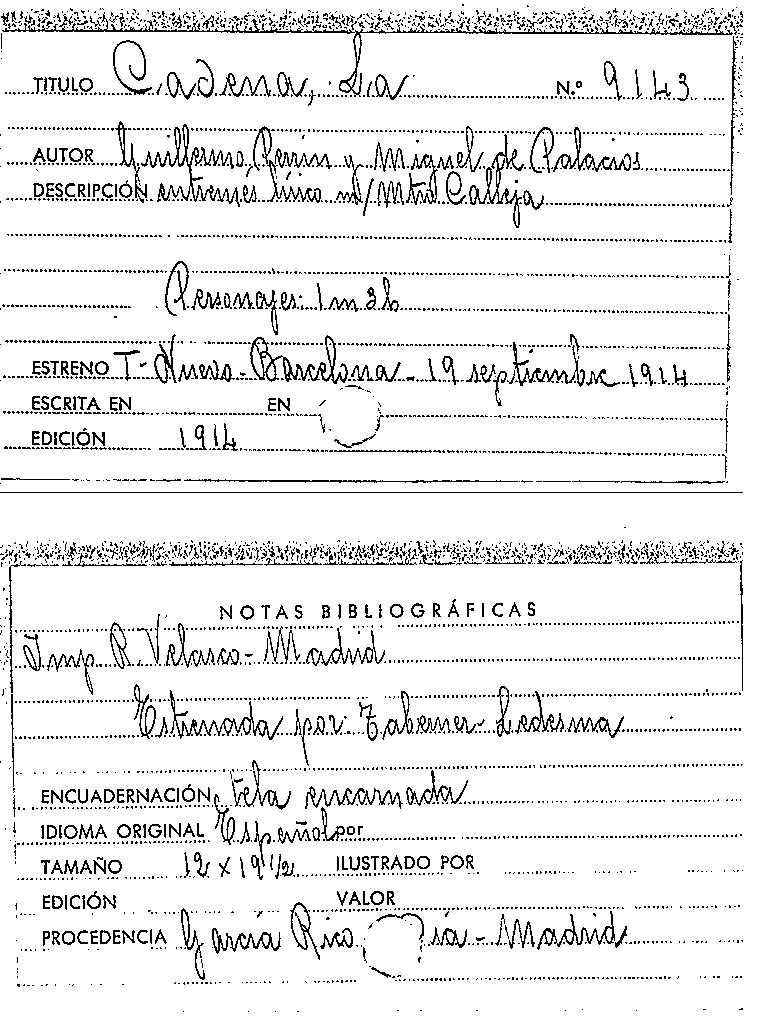 TITULO Cadena, La N.º 9143
AUTOR Guillermo Perrin y Miguel de Palacios
DESCRIPCIÓN entremés lírico m/ Mtro Calleja
Personajes: 1m 3h
ESTRENO T- Nuevo - Barcelona - 19 septiembre 1914
ESCRITA EN EN
EDICIÓN 1914
NOTAS BIBLIOGRÁFICAS
Imp R. Velasco - Madrid
Estrenada por: Taberner - Ledesma
ENCUADERNACIÓN tela encarnada
IDIOMA ORIGINAL Español por
TAMAÑO 12 x 19 1/2 ILUSTRADO POR
EDICIÓN VALOR
PROCEDENCIA García Rico - Madrid